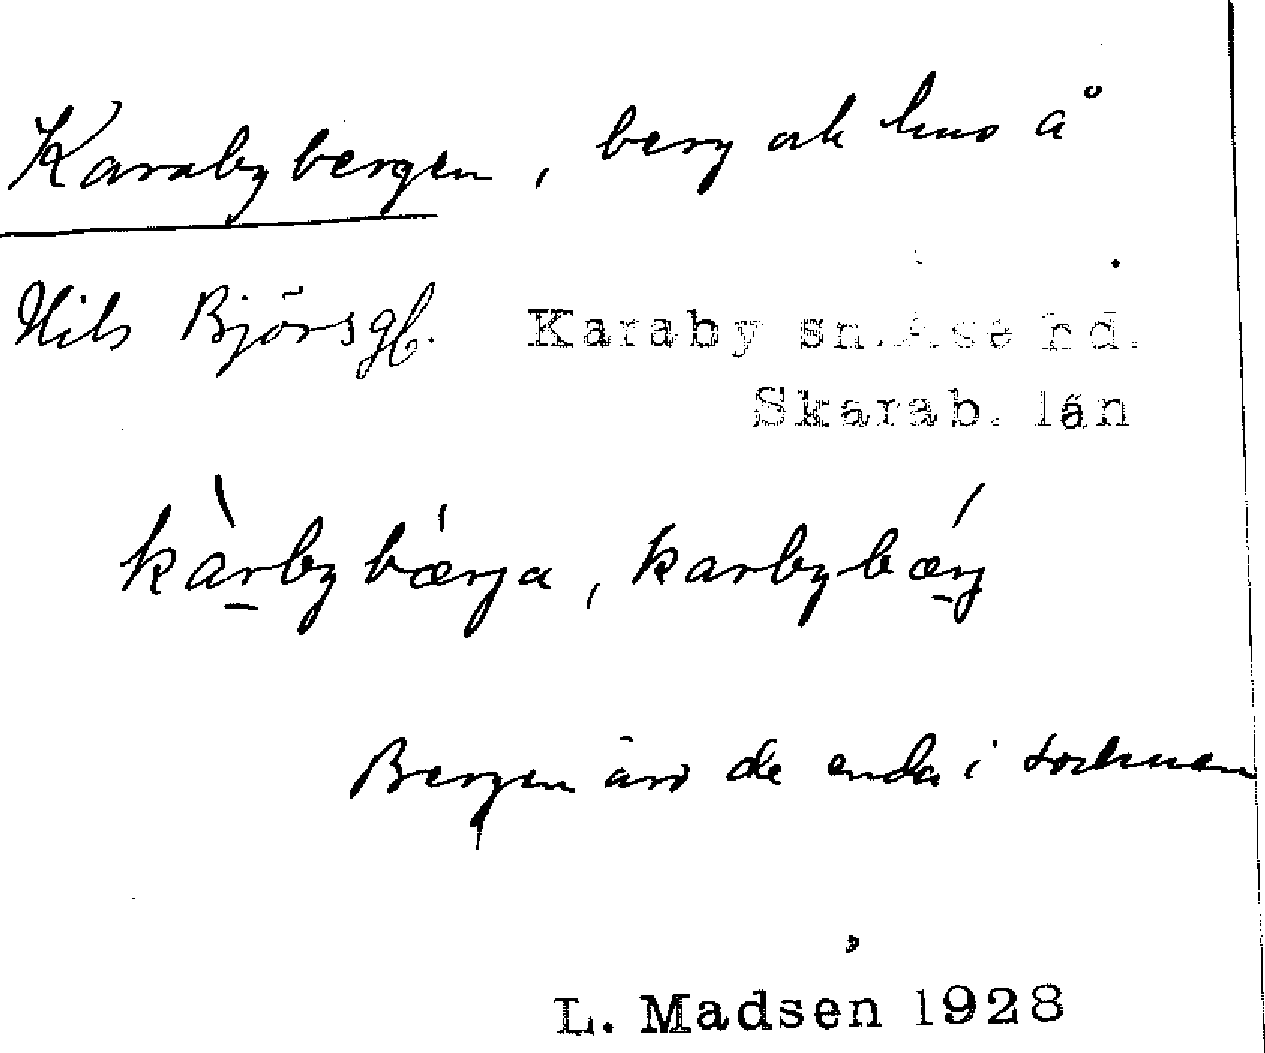 Karabybergen, berg ock hus å
Nils Björsgl. Karaby sn. Åse hd.
Skarab. län
kàrbybærja, karbybærj
Bergen äro de enda i socknen
L. Madsen 1928